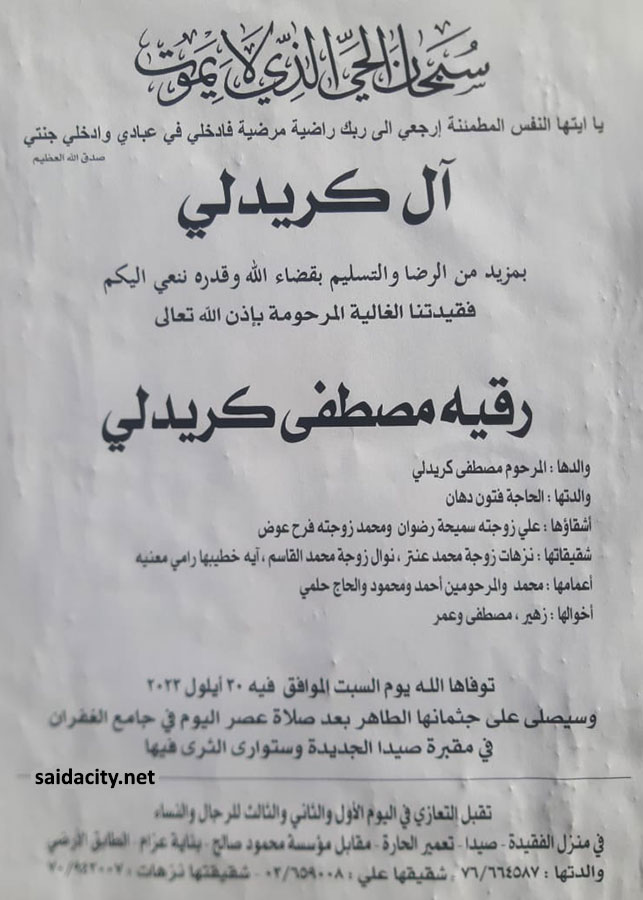 سبحان الحي الذي لا يموت
يا ايتها النفس المطمئنة إرجعي الى ربك راضية مرضية فادخلي في عبادي وادخلي جنتي
صدق الله العظيم
آل كريدلي
بمزيد من الرضا والتسليم بقضاء الله وقدره ننعي اليكم
فقيدتنا الغالية المرحومة بإذن الله تعالى
رقيه مصطفى كريدلي
والدها : المرحوم مصطفى كريدلي
والدتها : الحاجة فتون دهان
أشقاؤها : علي زوجته سميحة رضوان ومحمد زوجته فرح عوض
شقيقاتها : نزهات زوجة محمد عنتر ، نوال زوجة محمد القاسم ، آيه خطيبها رامي معنيه
أعمامها : محمد والمرحومين أحمد ومحمود والحاج حلمي
أخوالها : زهير ، مصطفى وعمر
توفاها الله يوم السبت الموافق فيه ٣٠ أيلول ٢٠٢٣
وسيصلى على جثمانها الطاهر بعد صلاة عصر اليوم في جامع الغفران
في مقبرة صيدا الجديدة وستوارى الثرى فيها
saidacity.net
تقبل التعازي في اليوم الأول والثاني والثالث للرجال والنساء
في منزل الفقيدة - صيدا - تعمير الحارة - مقابل مؤسسة محمود صالح - بناية عزام - الطابق الأرضي
والدتها : ٧٦/٦٦٤٥٨٧ ، شقيقها علي : ٠٣/٦٥٩٠٠٨ - شقيقتها نزهات : ٧٠/٩٤٣٠٠٧